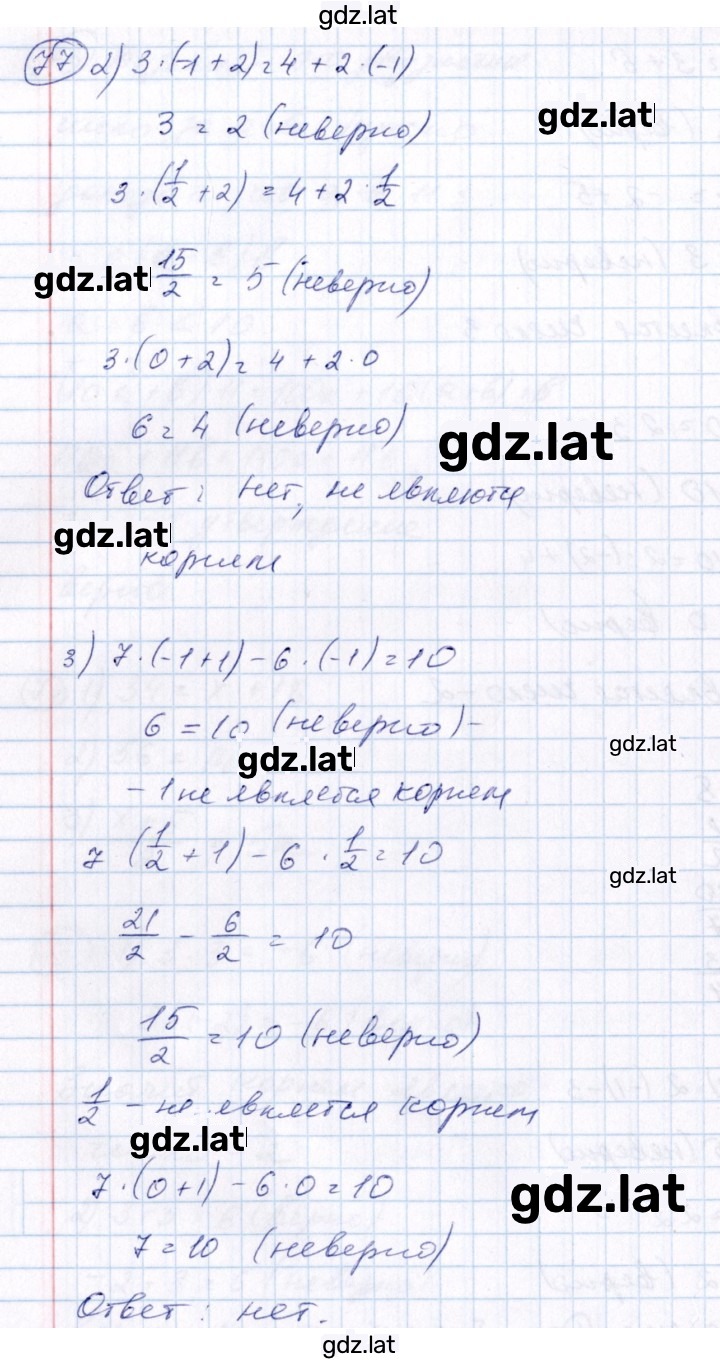 gdz.lat
77 2) 3·(-1+2)=4+2·(-1)
3 = 2 (неверно)
gdz.lat
3·(1/2+2)=4+2·1/2
gdz.lat
15/2 = 5 (неверно)
3·(0+2)=4+2·0
6=4 (неверно)
gdz.lat
Ответ: нет, не являются
gdz.lat
корнем
3) 7·(-1+1)-6·(-1)=10
6=10 (неверно)-
gdz.lat
gdz.lat
-1 не является корнем
7 (1/2+1)-6·1/2=10
gdz.lat
21/2 - 6/2 = 10
15/2 = 10 (неверно)
1/2 - не является корнем
gdz.lat
7·(0+1)-6·0=10
gdz.lat
7=10 (неверно)
Ответ: нет.
gdz.lat